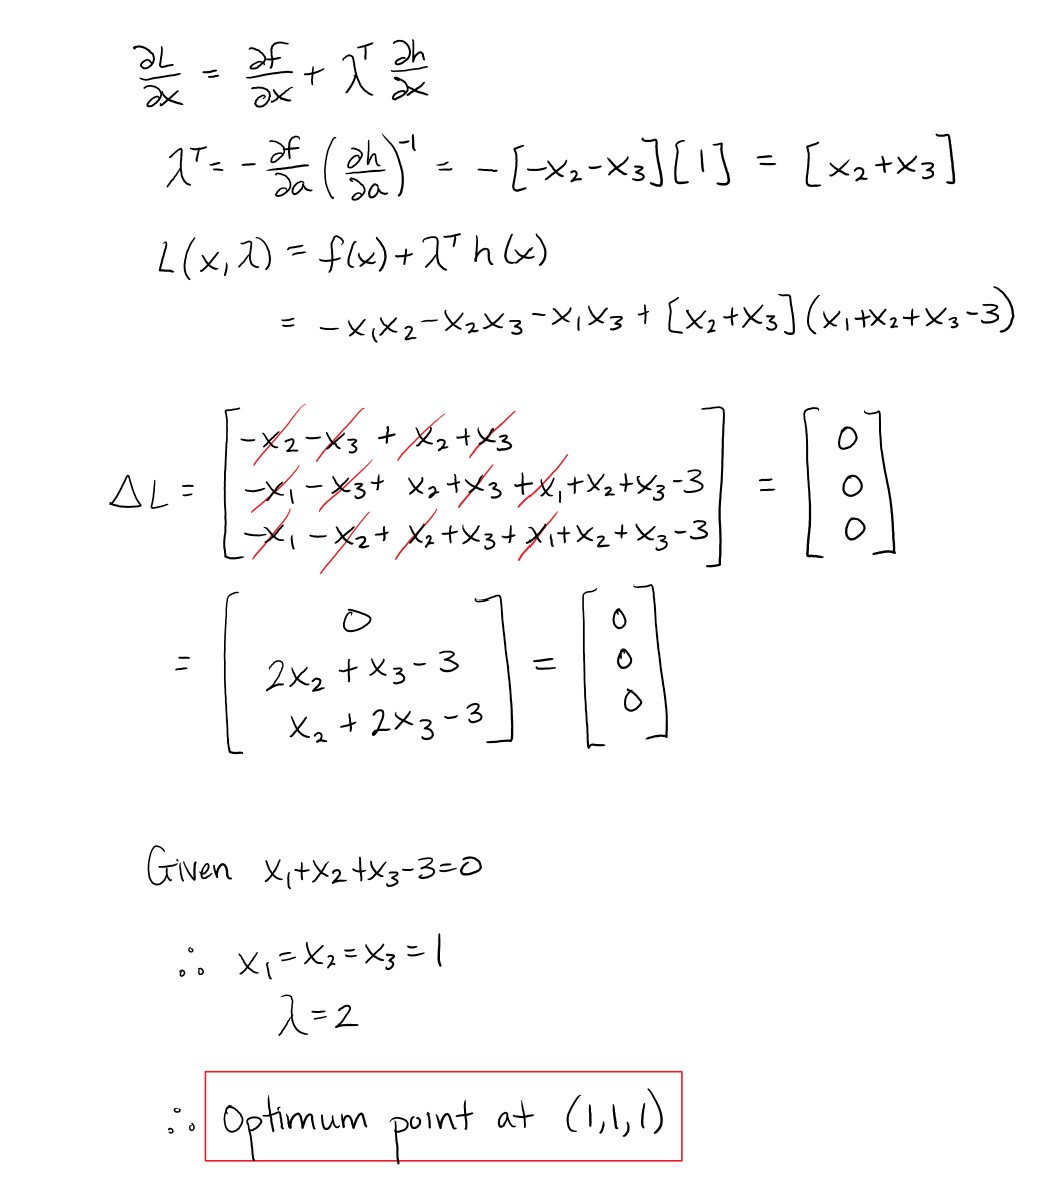 ∂L/∂x = ∂f/∂x + λᵀ ∂h/∂x
λᵀ = - ∂f/∂a (∂h/∂a)⁻¹ = - [-x₂-x₃][1] = [x₂+x₃]
L(x,λ) = f(x) + λᵀ h(x)
= -x₁x₂ - x₂x₃ - x₁x₃ + [x₂+x₃](x₁+x₂+x₃-3)
ΔL = [-x₂-x₃ + x₂+x₃
-x₁-x₃ + x₂+x₃+x₁+x₂+x₃-3
-x₁-x₂ + x₂+x₃+x₁+x₂+x₃-3] = [0 0 0]
= [0
2x₂+x₃-3
x₂+2x₃-3] = [0 0 0]
Given x₁+x₂+x₃-3=0
∴ x₁=x₂=x₃=1
λ=2
∴ Optimum point at (1,1,1)